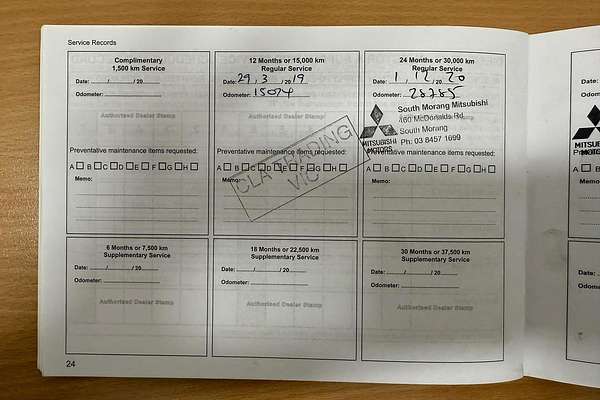 Service Records
Complimentary
1,500 km Service
Date: / / 20
Odometer:
Authorised Dealer Stamp
Preventative maintenance items requested:
A B C D E F G H
Memo:
12 Months or 15,000 km
Regular Service
Date: 29 / 3 / 2019
Odometer: 15074
Authorised Dealer Stamp
CLA TRADING
VIC
Preventative maintenance items requested:
A B C D E F G H
Memo:
24 Months or 30,000 km
Regular Service
Date: 1 / 12 / 2020
Odometer: 28785
MITSUBISHI
MOTORS
South Morang Mitsubishi
460 McDonalds Rd
South Morang
Ph: 03 8457 1699
Preventative maintenance items requested:
A B C D E F G H
Memo:
6 Months or 7,500 km
Supplementary Service
Date: / / 20
Odometer:
Authorised Dealer Stamp
18 Months or 22,500 km
Supplementary Service
Date: / / 20
Odometer:
Authorised Dealer Stamp
30 Months or 37,500 km
Supplementary Service
Date: / / 20
Odometer:
Authorised Dealer Stamp
24
Date:
Odometer:
A B
Memo:
Date:
Odometer: